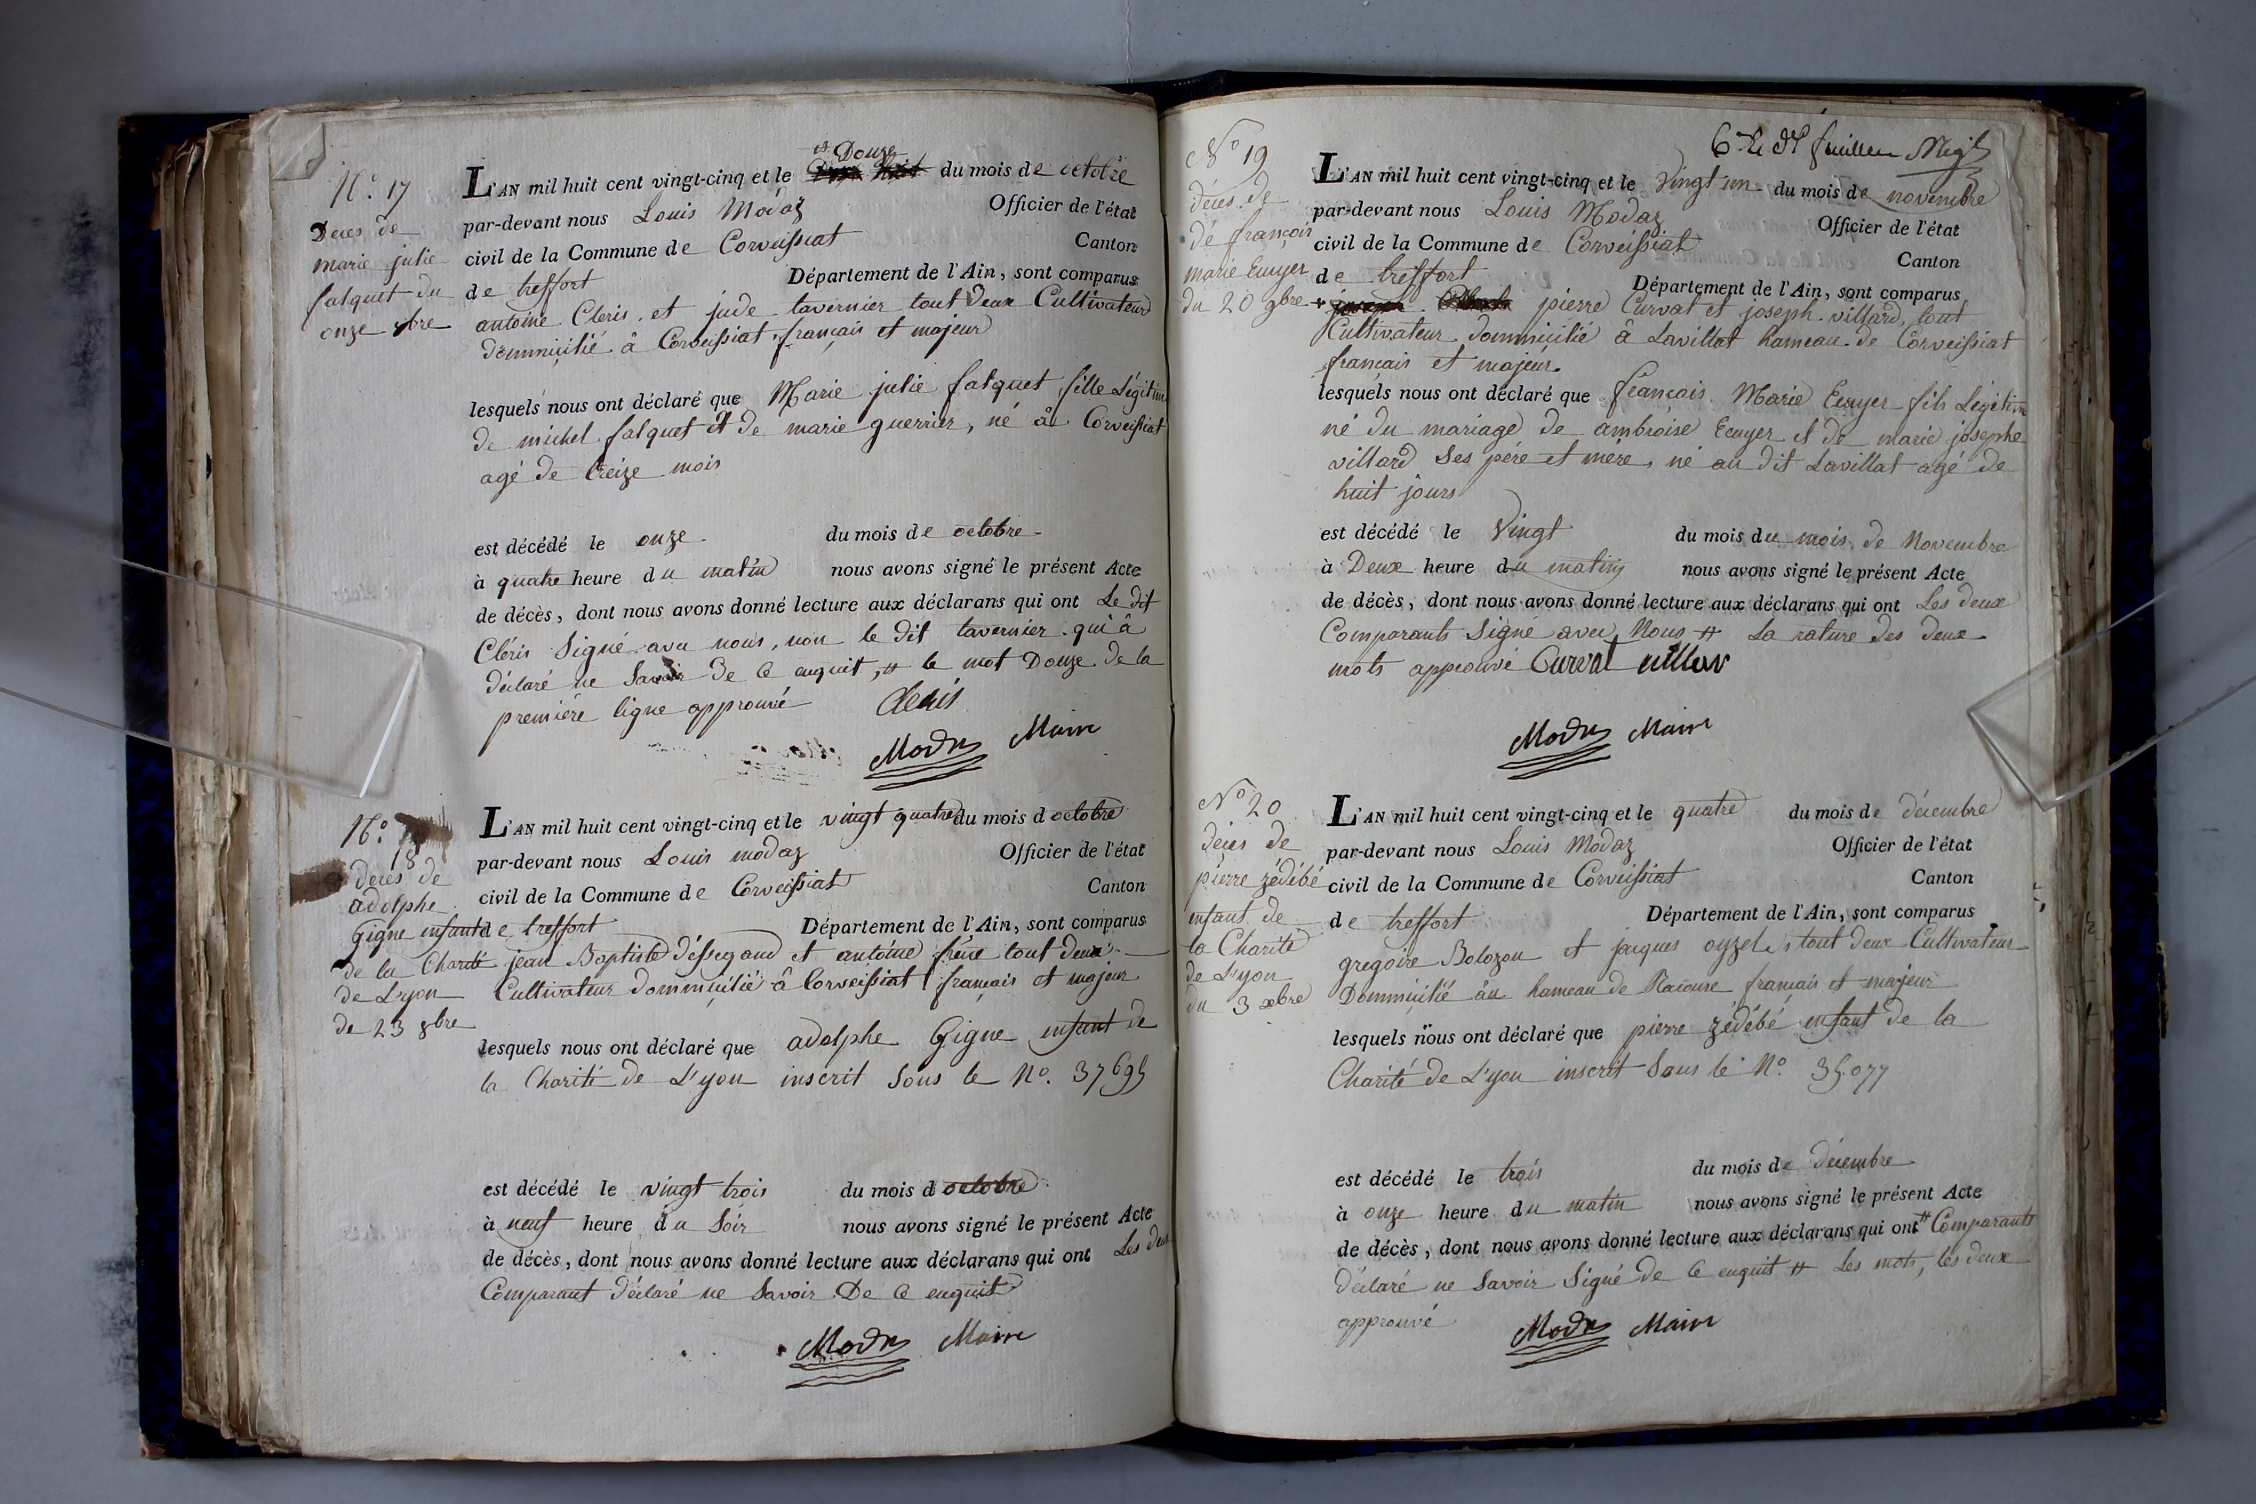 N.° 17
Deces de
marie julie
falquet du
onze 8bre
# Douze
L'AN mil huit cent vingt-cinq et le du mois de octobre
par-devant nous Louis Modaz Officier de l'état
civil de la Commune de Corveissiat Canton
de treffort Département de l'Ain, sont comparus
antoine Cleris et jude tavernier tout deux Cultivateur
dommicilié â Corveissiat, français et majeur
lesquels nous ont déclaré que Marie julie falquet fille Légitime
de michel falquet et de marie guerrier, né â Corveissiat
agé de treize mois
est décédé le onze du mois de octobre
à quatre heure du matin nous avons signé le présent Acte
de décès, dont nous avons donné lecture aux déclarans qui ont Le dit
Cléris Signé avec nous, non le dit tavernier qui â
déclaré ne Savoir De Ce enquit, # le mot Douze de la
première ligne approuvé
Cleris
Modaz Maire
N.° 18
deces de
adolphe
Gigne enfant
de la Charité
de Lyon
de 23 8bre
L'AN mil huit cent vingt-cinq et le vingt quatre du mois d octobre
par-devant nous Louis modaz Officier de l'état
civil de la Commune de Corveissiat Canton
de treffort Département de l'Ain, sont comparus
jean Baptiste déssegaud et antoine frére tout deux
Cultivateur dommicilié â Corveissiat français et majeur
lesquels nous ont déclaré que adolphe Gigne enfant de
la Charité de L'yon inscrit Sous le N.° 37695
est décédé le vingt trois du mois d octobre
à neuf heure du Soir nous avons signé le présent Acte
de décès, dont nous avons donné lecture aux déclarans qui ont Les deux
Comparant déclaré ne Savoir De Ce enquit
Modaz Maire
6.e et feuillet
N° 19
déces de
dé françois
marie Ecuyer
du 20 9bre
L'AN mil huit cent vingt-cinq et le vingt un du mois de novembre
par-devant nous Louis Modaz Officier de l'état
civil de la Commune de Corveissiat Canton
de treffort Département de l'Ain, sont comparus
pierre Curvat et joseph villard, tout
Cultivateur dommicilié â Lavillat hameau de Corveissiat
français et majeur
lesquels nous ont déclaré que françois Marie Ecuyer fils Légitime
né du mariage de ambroise Ecuyer et de marie josephe
villard Ses pére et mére, né au dit Lavillat agé de
huit jours
est décédé le Vingt du mois du mois de Novembre
à Deux heure du matin nous avons signé le présent Acte
de décès, dont nous avons donné lecture aux déclarans qui ont Les deux
Comparants Signé avec Nous # La rature des deux
mots approuvé Curvat villar
Modaz Maire
N° 20
déces de
pierre zédébé
enfant de
la Charité
de L'yon
du 3 xbre
L'AN mil huit cent vingt-cinq et le quatre du mois de décembre
par-devant nous Louis Modaz Officier de l'état
civil de la Commune de Corveissiat Canton
de treffort Département de l'Ain, sont comparus
gregoire Bolozon et jacques oyzel, tout deux Cultivateur
Dommicilié âu hameau de Racouse français et majeur
lesquels nous ont déclaré que pierre zédébé enfant de la
Charité de L'yon inscrit Sous le N.° 35.077
est décédé le trois du mois de décembre
à onze heure du matin nous avons signé le présent Acte
de décès, dont nous avons donné lecture aux déclarans qui ont # Comparants
déclaré ne Savoir Signé de Ce enquit # Les mots, les deux
approuvé
Modaz Maire